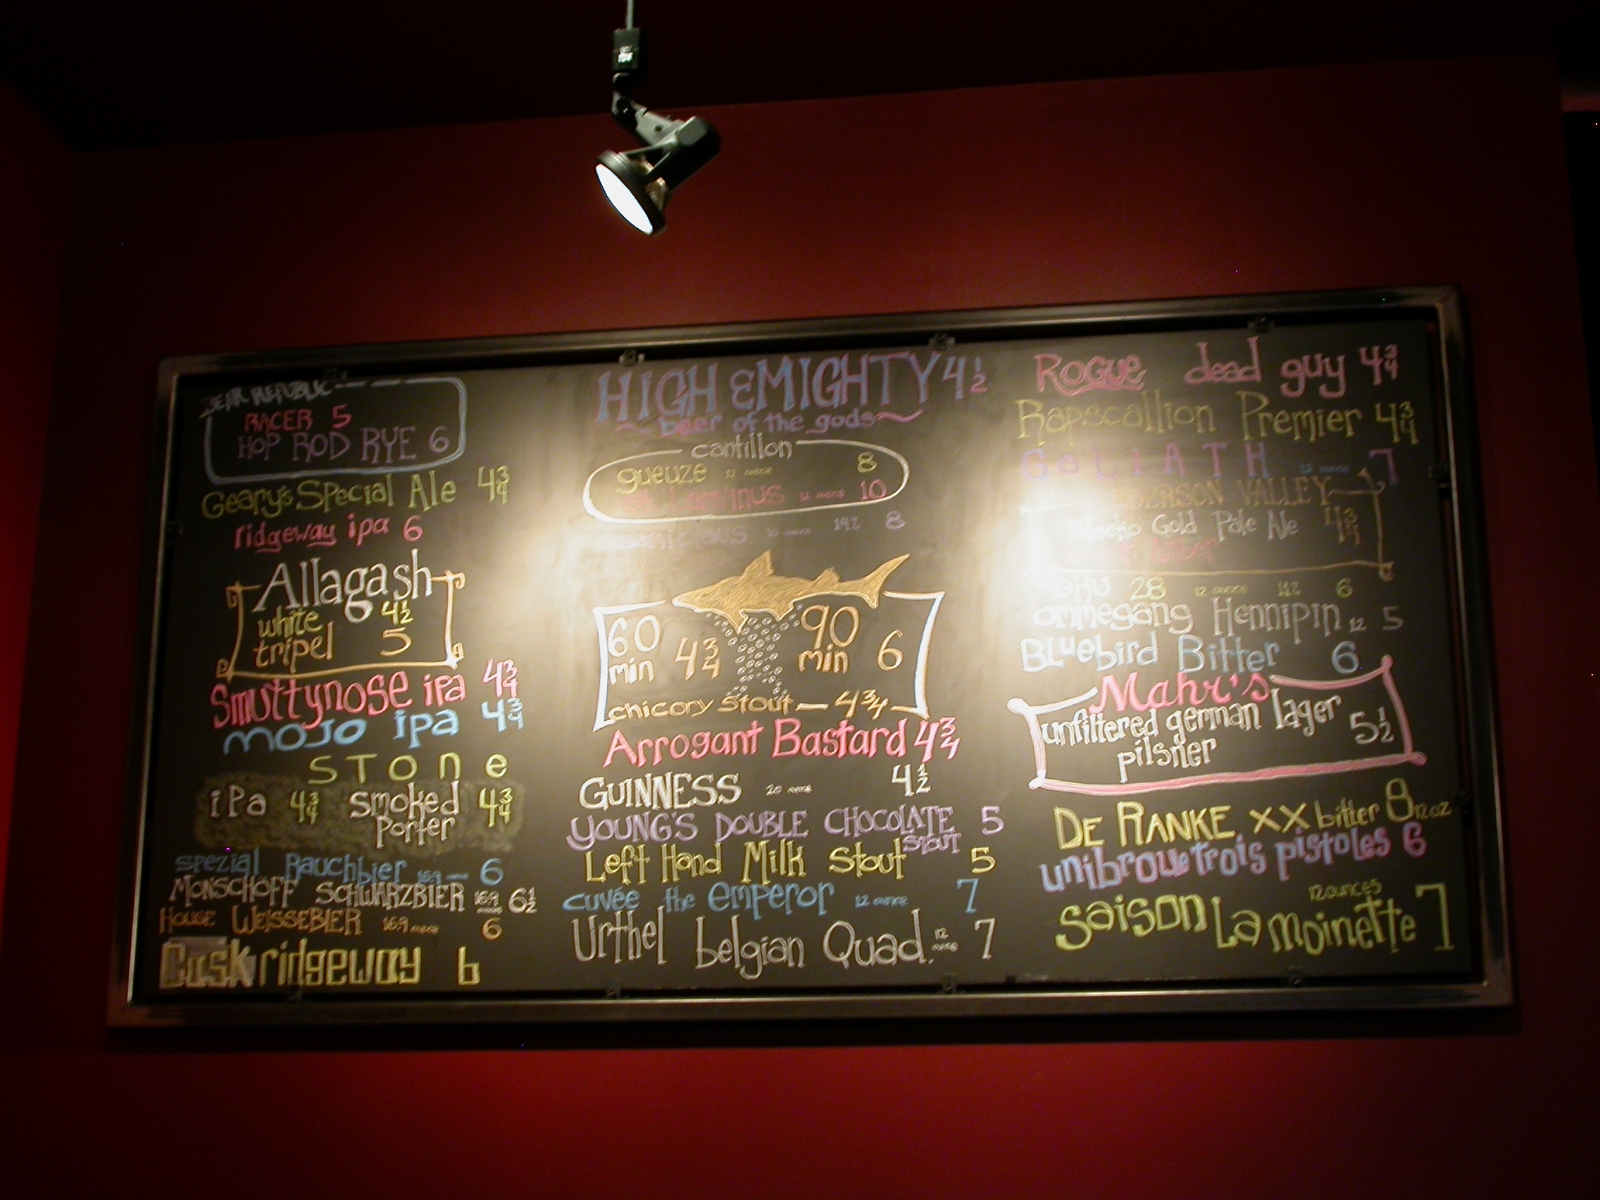 BEAR REPUBLIC
RACER 5
HOP ROD RYE 6
Geary's Special Ale 4 3/4
ridgeway ipa 6
Allagash
white 4 1/2
tripel 5
Smuttynose ipa 4 3/4
mojo ipa 4 3/4
STONE
iPa 4 3/4 smoked 4 3/4
Porter
spezial Rauchbier 16.9 6
MONSCHOFF SCHWARZBIER 16.9 6 1/2
HOUSE WEISSEBIER 16.9 6
Cask ridgeway 6
HIGH & MIGHTY 4 1/2
beer of the gods
cantillon
gueuze 12 ounce 8
12 ounce 10
12 ounce 14% 8
60 min 4 3/4
90 min 6
chicory Stout 4 3/4
Arrogant Bastard 4 3/4
GUINNESS 20 ounce 4 1/2
YOUNG'S DOUBLE CHOCOLATE STOUT 5
Left Hand Milk Stout 5
cuvée the emperor 12 ounce 7
Urthel belgian Quad. 12 ounce 7
ROGUE dead guy 4 3/4
Rapscallion Premier 4 3/4
GOLIATH 12 ounce 7
ANDERSON VALLEY
Gold Pale Ale 4 3/4
eku 28 12 ounce 11% 6
ommegang Hennipin 12 5
Bluebird Bitter 6
Mahr's
unfiltered german lager 5 1/2
pilsner
DE RANKE XX bitter 8 12oz
unibroue trois pistoles 6
12 ounces
saison La moinette 7